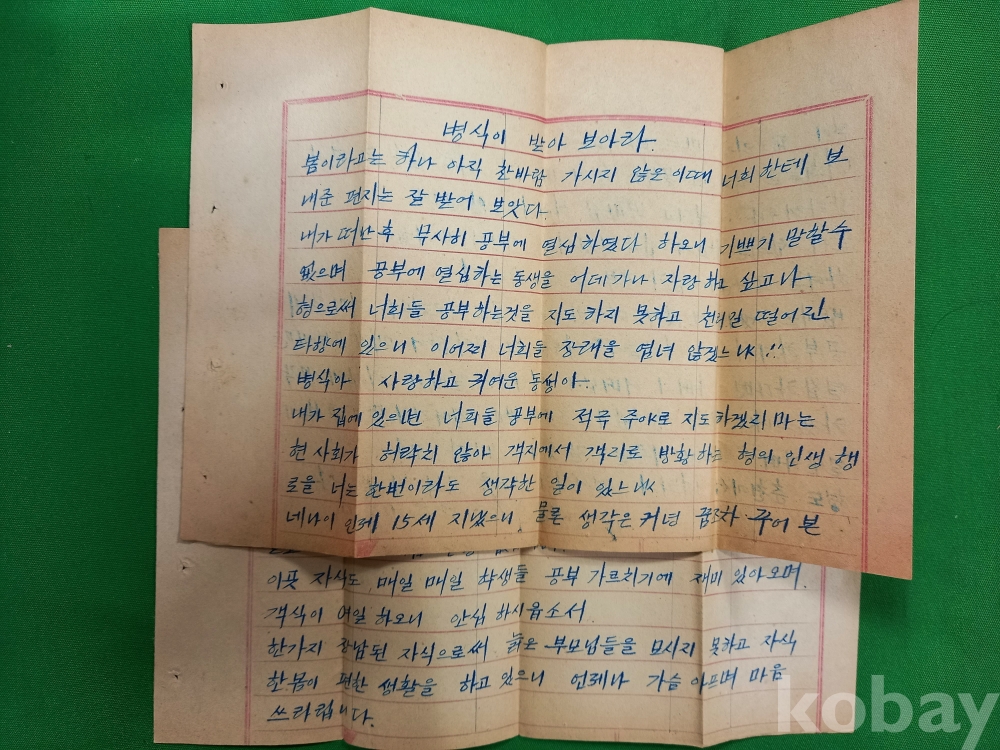 병식이 받아 보아라.
봄이라고는 하나 아직 찬바람 가시지 않은 이때 너희한테 보
내준 편지는 잘 받어 보았다.
내가 떠난후 무사히 공부에 열심하였다 하오니 기쁘기 말할수
없으며 공부에 열심하는 동생을 어데가나 자랑하고 싶고나
형으로써 너희들 공부하는것을 지도 하지 못하고 천리길 떨어진
타향에 있으니 이어찌 너희들 장래을 염녀 않겠느냐!!
병식아 사랑하고 귀여운 동생아
내가 집에 있으면 너희들 공부에 적극 주야로 지도하겠리 마는
현 사회가 허락치 않아 객지에서 객리로 방황하는 형의 인생 행
로을 너는 한번이라도 생각한 일이 있느냐
네나이 인제 15세 지냈으니 물론 생각은 커녕 꿈조차 꾸어 본
이곳 자식도 매일 매일 학생들 공부 가르치기에 재미 있아오며
객식이 여일 하오니 안심 하시읍소서
한가지 장남된 자식으로써 늙은 부모님들을 모시지 못하고 자식
한몸이 편한 생활을 하고 있으니 언제나 가슴 아프며 마음
쓰라립니다.
kobay